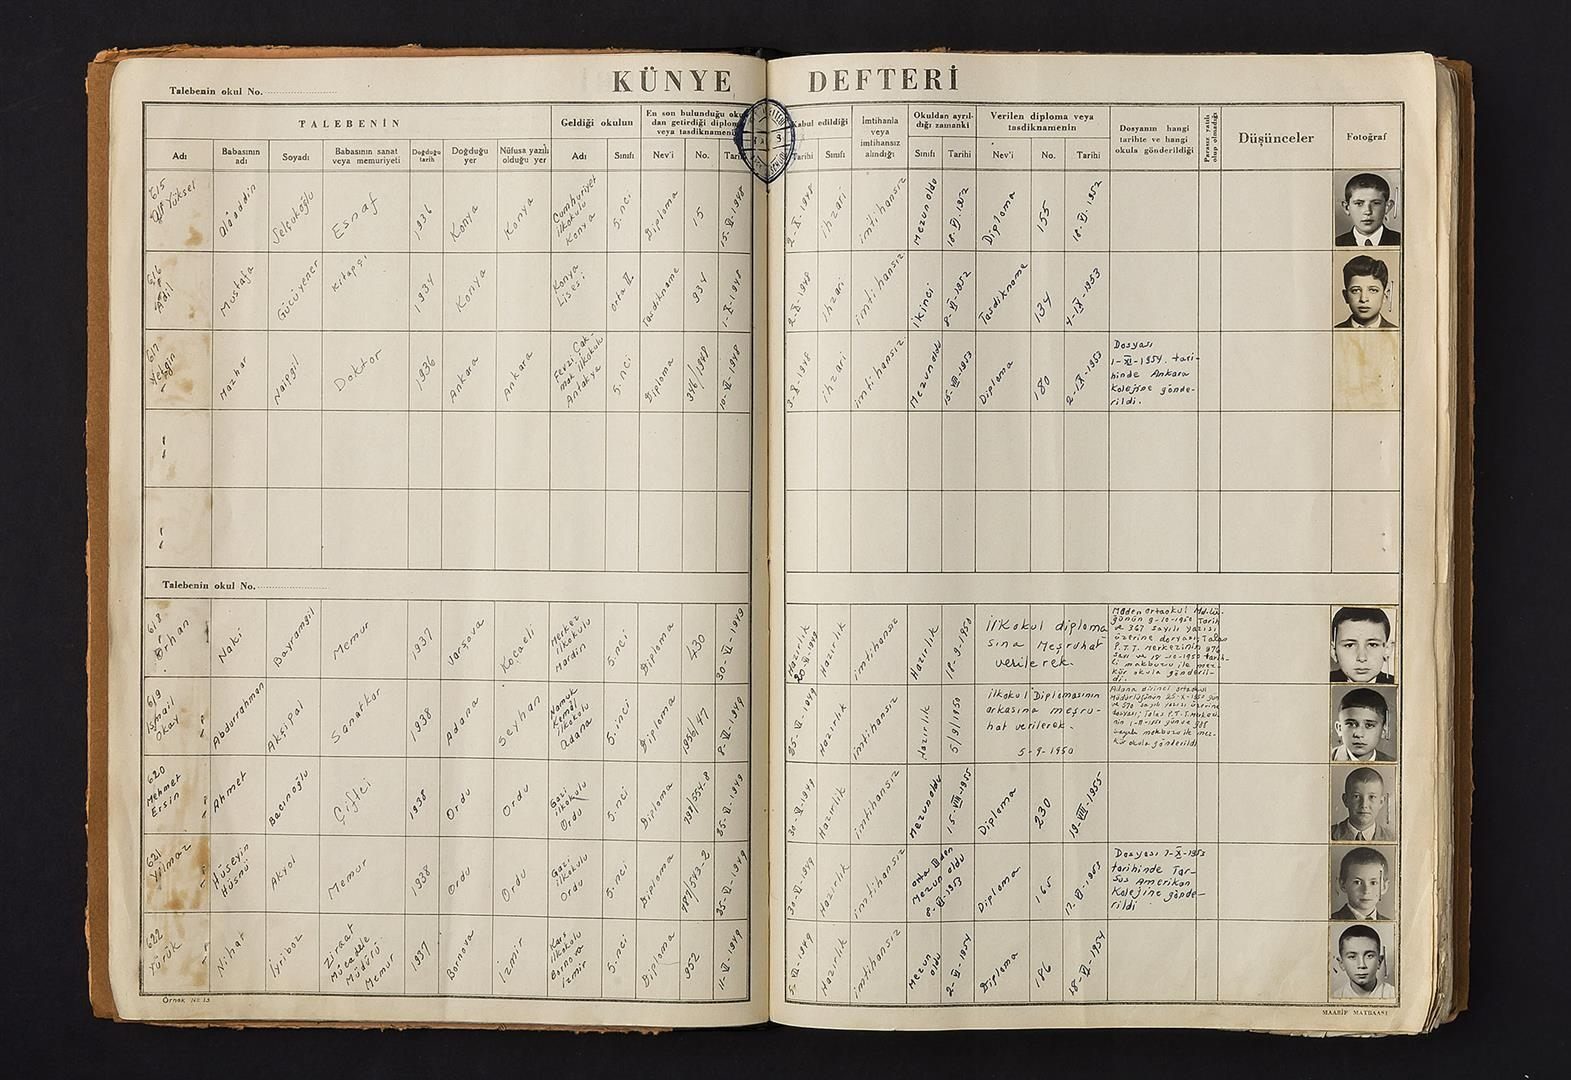 KÜNYE DEFTERİ
Talebenin okul No.
TALEBENİN
Geldiği okulun
En son bulunduğu oku
dan getirdiği diplom
veya tasdiknameni
Kabul edildiği
İmtihanla
veya
imtihansız
alındığı
Okuldan ayrıl-
dığı zamanki
Verilen diploma veya
tasdiknamenin
Dosyanın hangi
tarihte ve hangi
okula gönderildiği
Parasız yatılı
olup olmadığı
Düşünceler
Fotoğraf
Adı
Babasının
adı
Soyadı
Babasının sanat
veya memuriyeti
Doğduğu
tarih
Doğduğu
yer
Nüfusa yazılı
olduğu yer
Adı
Sınıfı
Nev'i
No.
Tarihi
Tarihi
Sınıfı
Sınıfı
Tarihi
Nev'i
No.
Tarihi
615
Yüksel
Alâaddin
Selçukoğlu
Esnaf
1936
Konya
Konya
Cumhuriyet
ilkokulu
Konya
5.nci
Diploma
15
15-VI-1948
2-X-1948
ihzari
imtihansız
Mezun oldu
18-VI-1952
Diploma
155
18-VI-1952
616
Adil
Mustafa
Gücüyener
Kitapçı
1934
Konya
Konya
Konya
Lisesi
Orta II.
Tasdikname
934
1-X-1948
2-X-1948
ihzari
imtihansız
ikinci
8-VI-1952
Tasdikname
134
4-IX-1953
617
Yengin
Mazhar
Naipgil
Doktor
1936
Ankara
Ankara
Fevzi Çak-
mak ilkokulu
Antakya
5.nci
Diploma
346/1948
10-VI-1948
3-X-1948
ihzari
imtihansız
Mezun oldu
15-VIII-1953
Diploma
180
2-IX-1953
Dosyası
1-XI-1954. tari-
hinde Ankara
Kolejine gönde-
rildi.
Talebenin okul No.
618
Orhan
Naki
Bayramgil
Memur
1937
Varşova
Kocaeli
Merkez
ilkokulu
Mardin
5.nci
Diploma
430
30-VI-1949
Hazırlık
Hazırlık
18-9-1950
ilkokul diploma
sına Meşruhat
verilerek.
Maden ortaokul Md.lü-
ğünün 9-10-1950 Tarih
ve 367 sayılı yazısı
üzerine dosyası; Talas
P.T.T. Merkezinin 976
619
Ismail
Okay
Abdurrahman
Akçipal
Sanatkar
1938
Adana
Seyhan
Namık
Kemal
ilkokulu
Adana
5.inci
Diploma
996/47
8-VI-1949
Hazırlık
imtihansız
Hazırlık
5/9/1950
ilkokul Diplomasının
arkasına meşru-
hat verilerek.
5-9-1950
Adana birinci ortaokul
620
Mehmet
Ersin
Ahmet
Bacınoğlu
Çiftci
1938
Ordu
Ordu
Gazi
ilkokulu
Ordu
5.nci
Diploma
30-VI-1949
Hazırlık
imtihansız
Mezun oldu
15-VIII-1955
Diploma
230
19-VIII-1955
621
Yılmaz
Hüseyin
Hüsnü
Akyol
Memur
1938
Ordu
Ordu
Gazi
ilkokulu
Ordu
5.nci
Diploma
30-VI-1949
Hazırlık
imtihansız
Mezun oldu
Diploma
165
17-VI-1953
Dosyası 7-X-1953
tarihinde Tar-
sus Amerikan
Kolejine gönde-
rildi
622
Yürük
Nihat
İyriboz
Ziraat
Mücadele
Müdürü
Memur
1937
Bornova
İzmir
Kars
ilkokulu
Bornova
İzmir
5.nci
Diploma
952
11-VI-1949
Hazırlık
imtihansız
Mezun
oldu
2-VI-1954
Diploma
186
18-VI-1954
Örnek No 13
MAARİF MATBAASI